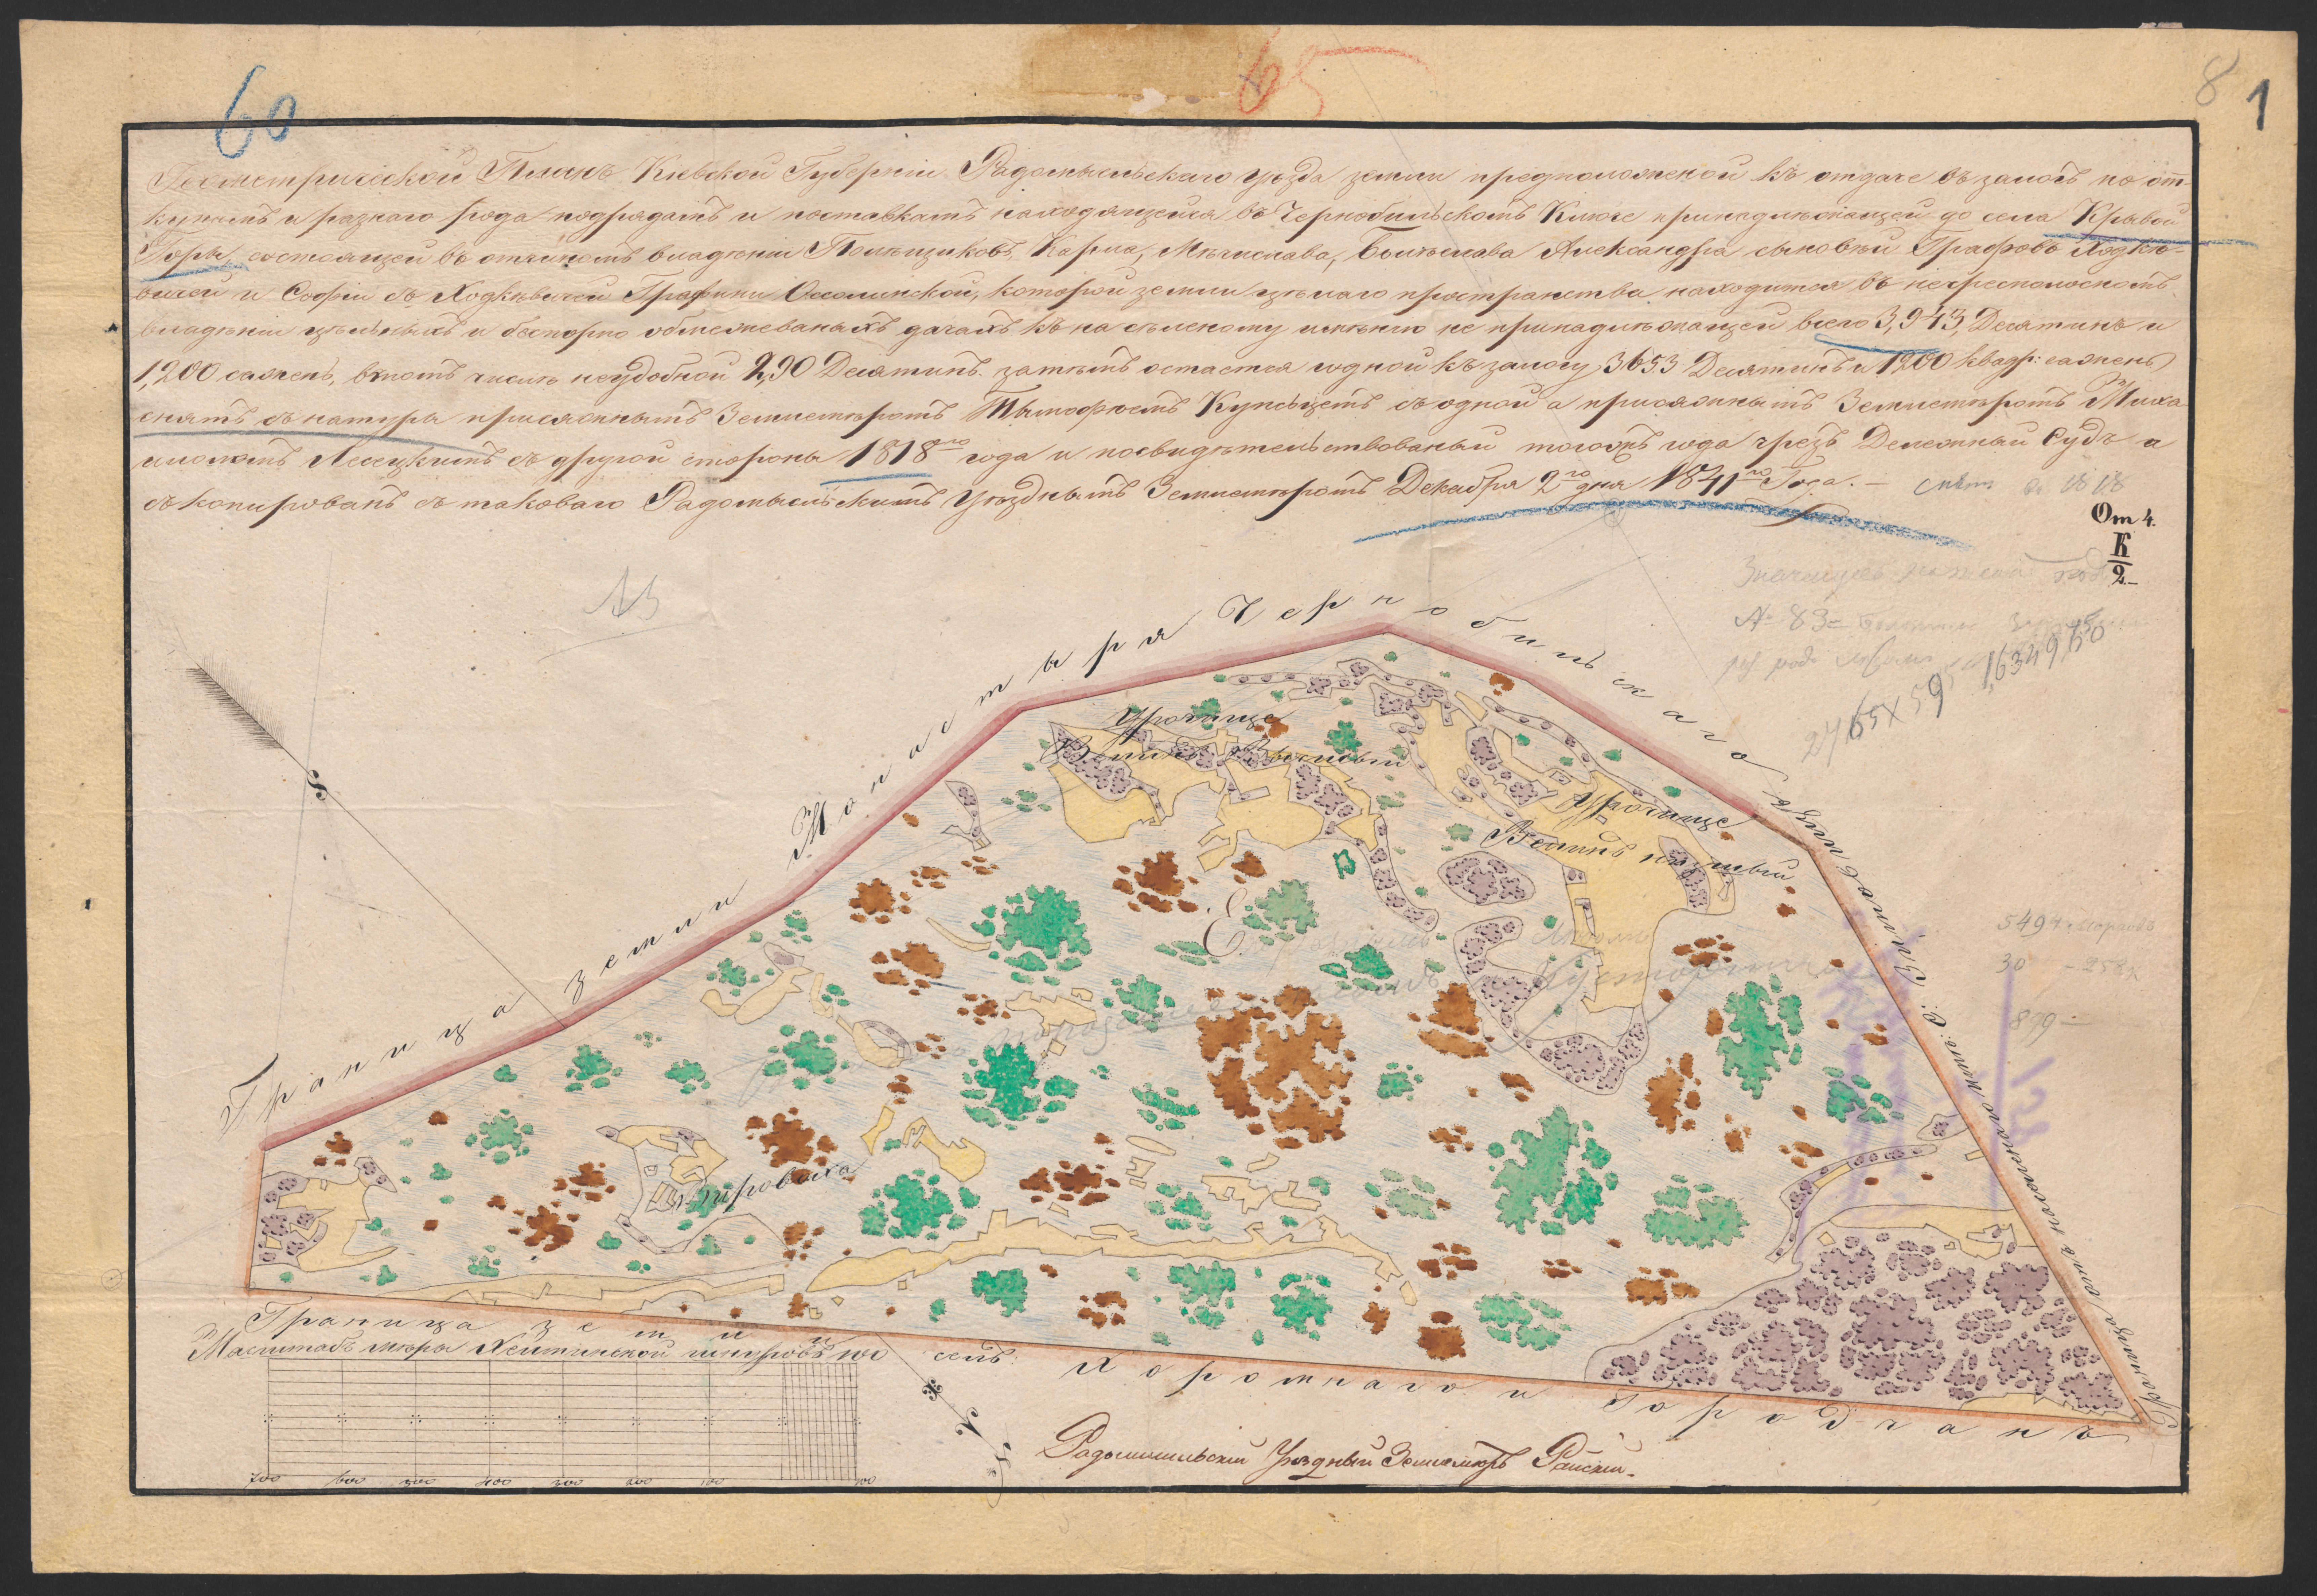 60
65
8 1
Геометрической Планъ Кіевской Губерніи Радомысльскаго уѣзда земли предположеной къ отдаче въ залогъ по от-
купамъ и разнаго рода подрядамъ и поставкамъ находящейся въ Чернобильскомъ Ключе принадлѣжащей до села Крывой
Горы, состоящей въ отчиномъ владѣніи Помѣщиковъ, Карла, Мѣчислава, Болѣслава Александра сыновѣй Графовъ Ходкѣ-
вичей и Софіи съ Ходкѣвичей Графини Оссолинской, которой земли цѣлаго пространства находится въ нечресполосномъ
владѣніи цѣльныхъ и беспорно обмежеваныхъ дачахъ къ на сѣленому имѣнію не принадлѣжащей всего 3,943, Десятинъ и
1,200 сажень, втомъ числѣ неудобной 290 Десятинъ. затѣмъ остается годной къ залогу 3653 Десятинъ и 1200 квадр: сажень
снятъ съ натуры присяжнымъ Землемѣромъ Тымофѣемъ съ одной а присяжнымъ Землемѣромъ Миха
иломъ Лесецкимъ съ другой стороны 1818го года и посвидѣтельствованый тогожъ года чрезъ Дележный Судъ а
съкопированъ съ таковаго Радомысльскимъ Уѣзднымъ Землемѣромъ Декабря 2го дня 1841го Года. —
1818
От 4.
К
2
13
№ 83
1634960
Граница земли Монастыря Чернобильскаго
Урочище
Урочище
S
Е.
5494
30 - 258
899 —
Граница земли Хоромнаго и Городчанъ
Масштабъ мѣры 100 саж:
700 600 500 400 300 200 100 100
Радомысльскій Уѣздный Землемѣръ Раискій.